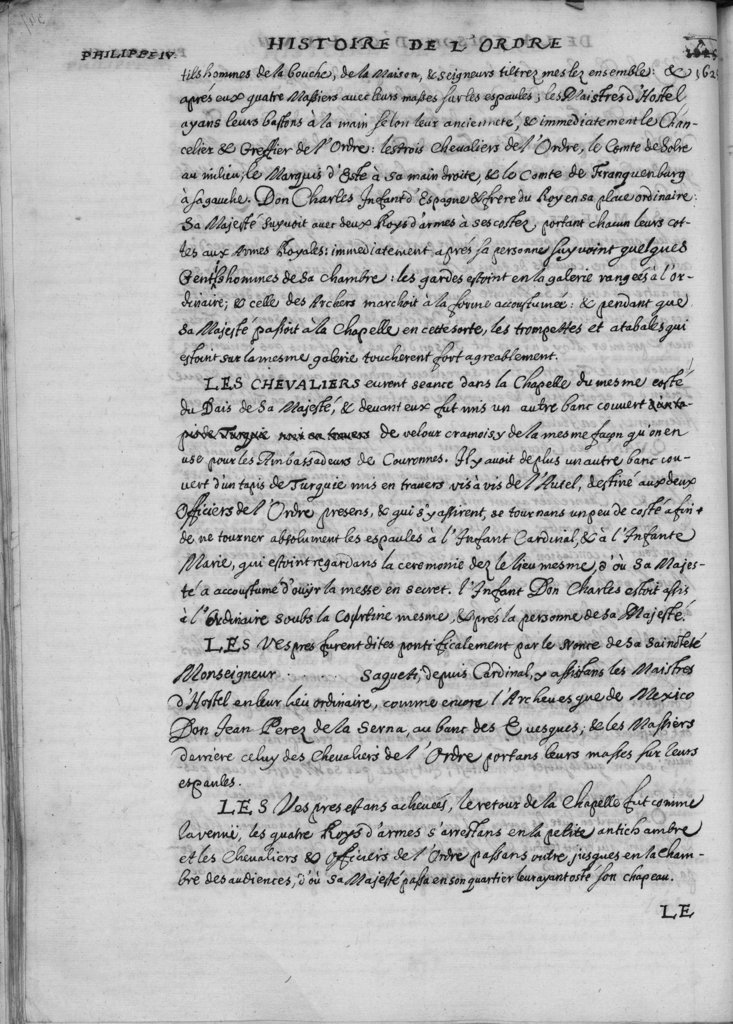 HISTOIRE DE L'ORDRE
PHILIPPE IV.
tilshommes de la bouche, de la Maison, & seigneurs tiltrez meslez ensemble: & 1625
aprés eux quatre Massiers avec leurs masses sur les espaules; les Maistres d'Hostel
ayans leurs bastons à la main selon leur ancienneté, & immediatement le Chan-
celier & Greffier de l'Ordre: les trois Chevaliers de l'Ordre, le Comte de Solre
au milieu, le Marquis d'Este à sa main droite, & le Comte de Franquenburg
à sa gauche. Don Charles Infant d'Espagne & frere du Roy en sa place ordinaire:
Sa Majesté suyvoit avec deux Roys d'armes à ses costez, portant chacun leurs cot-
tes aux Armes Royales: immediatement aprés sa personne suyvoint quelques
Gentilshommes de sa chambre: les gardes estoint en la galerie rangées à l'or-
dinaire; & celle des Archers marchoit à la forme accoustumée: & pendant que
sa Majesté passoit à la Chapelle en cette sorte, les trompettes et atabales qui
estoint sur la mesme galerie toucherent fort agreablement.
LES CHEVALIERS eurent seance dans la Chapelle du mesme costé
du Dais de Sa Majesté, & devant eux fut mis un autre banc couvert
de velour cramoisy de la mesme façon qu'on en
use pour les Ambassadeurs de Couronnes. Il y avoit de plus un autre banc cou-
vert d'un tapis de Turquie mis en travers vis à vis de l'Autel, destiné aux deux
Officiers de l'Ordre presens, & qui s'y assirent, se tournans un peu de costé afin
de ne tourner absolument les espaules à l'Infant Cardinal, & à l'Infante
Marie, qui estoint regardans la ceremonie dez le lieu mesme, d'où Sa Majes-
té a accoustumé d'ouÿr la messe en secret. l'Infant Don Charles estoit assis
à l'ordinaire soubs la Courtine mesme, & prés la personne de Sa Majesté.
LES Vespres furent dites pontificalement par le Nonce de Sa Saincteté
Monseigneur . . . . . Sagueti, depuis Cardinal, y assistans les Maistres
d'Hostel en leur lieu ordinaire, comme encore l'Archevesque de Mexico
Don Jean Perez de la Serna, au banc des Evesques; & les Massiers
darriere celuy des Chevaliers de l'Ordre portans leurs masses sur leurs
espaules.
LES Vespres estans achevées, le retour de la Chapelle fut comme
la venuë, les quatre Roys d'armes s'arrestans en la petite antichambre
et les Chevaliers & Officiers de l'Ordre passans outre jusques en la cham-
bre des audiences, d'où Sa Majesté passa en son quartier leur ayant osté son chapeau.
LE